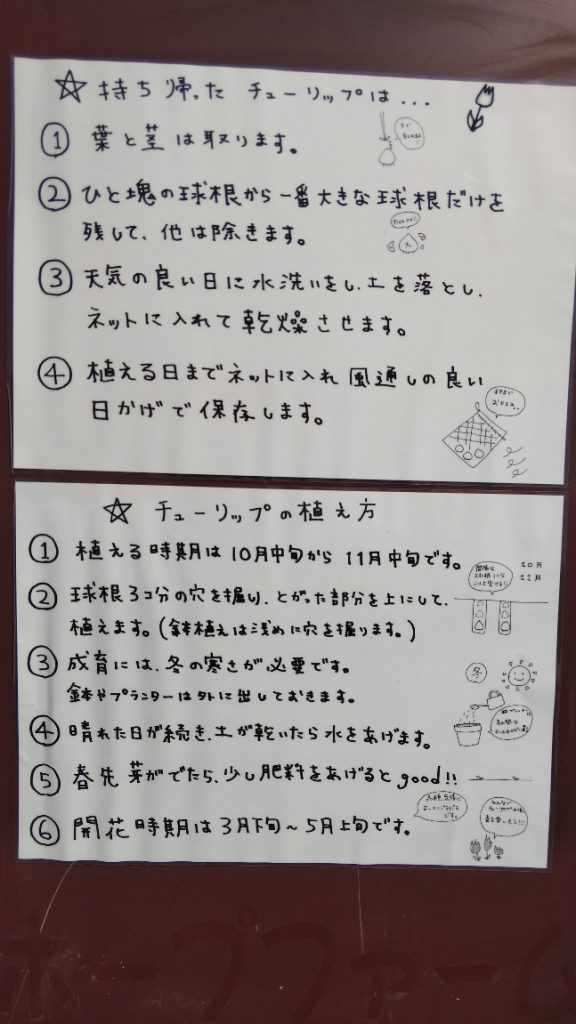 ☆ 持ち帰った チューリップは...
① 葉と茎は取ります。
② ひと塊の球根から一番大きな球根だけを
残して、他は除きます。
③ 天気の良い日に水洗いをし、土を落とし、
ネットに入れて乾燥させます。
④ 植える日までネットに入れ 風通しの良い
日かげで保存します。
☆ チューリップの植え方
① 植える時期は10月中旬から11月中旬です。
10月
11月
② 球根3コ分の穴を掘り、とがた部分を上にして、
植えます。(鉢植えは浅めに穴を掘ります。)
③ 成育には、冬の寒さが必要です。
鉢やプランターは外に出しておきます。
冬
④ 晴れた日が続き、土が乾いたら水をあげます。
⑤ 春先 芽がでたら、少し肥料をあげるとgood!!
⑥ 開花時期は3月下旬～5月上旬です。
ホープファーム